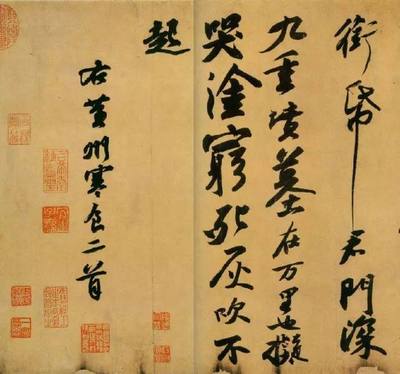 銜帋君門深
九重墳墓在万里也擬
哭塗窮死灰吹不
起
右黃州寒食二首